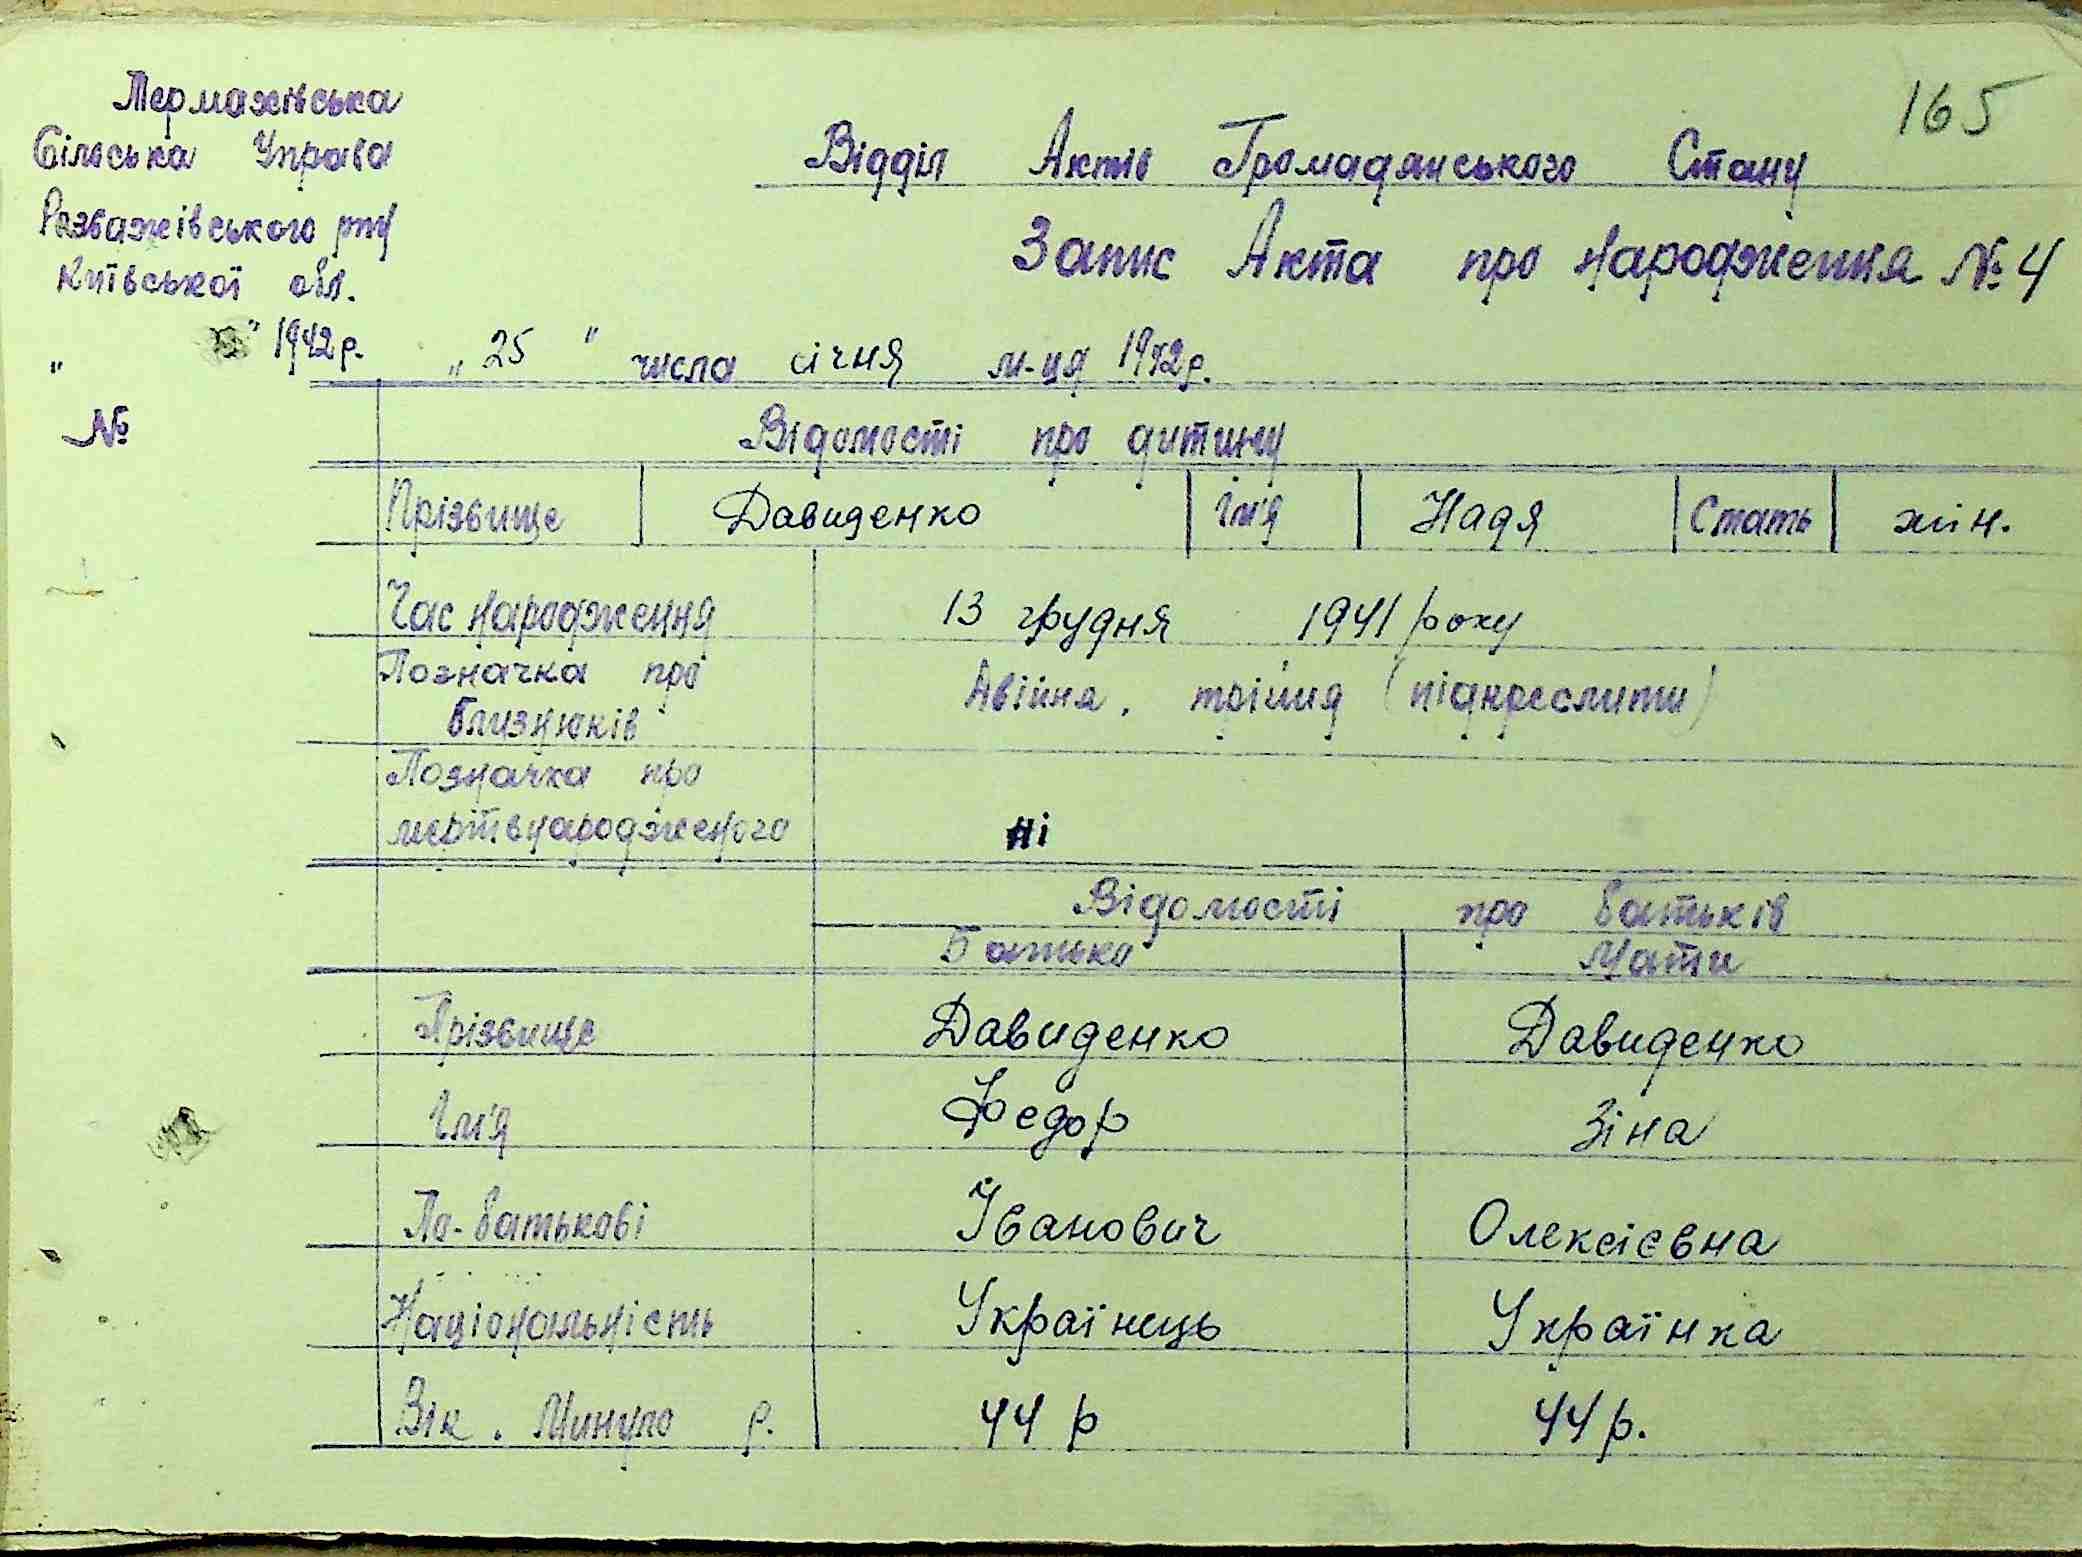 Термахівська
Сільська Управа
Розважівського р-ну
Київської обл.
" " 1942 р.
№
165
Відділ Актів Громадянського Стану
Запис Акта про народження № 4
„ 25 " числа січня м-ця 1942 р.
Відомості про дитину
Прізвище Давиденко Ім'я Надя Стать жін.
Час народження 13 грудня 1941 року
Позначка про
близнюків Двійня, трійня (підкреслити)
Позначка про
мертвнародженого ні
Відомості про батьків
Батько Мати
Прізвище Давиденко Давиденко
Ім'я Федор Зіна
По-батькові Іванович Олексієвна
Національність Українець Українка
Вік. Минуло р. 44 р 44 р.